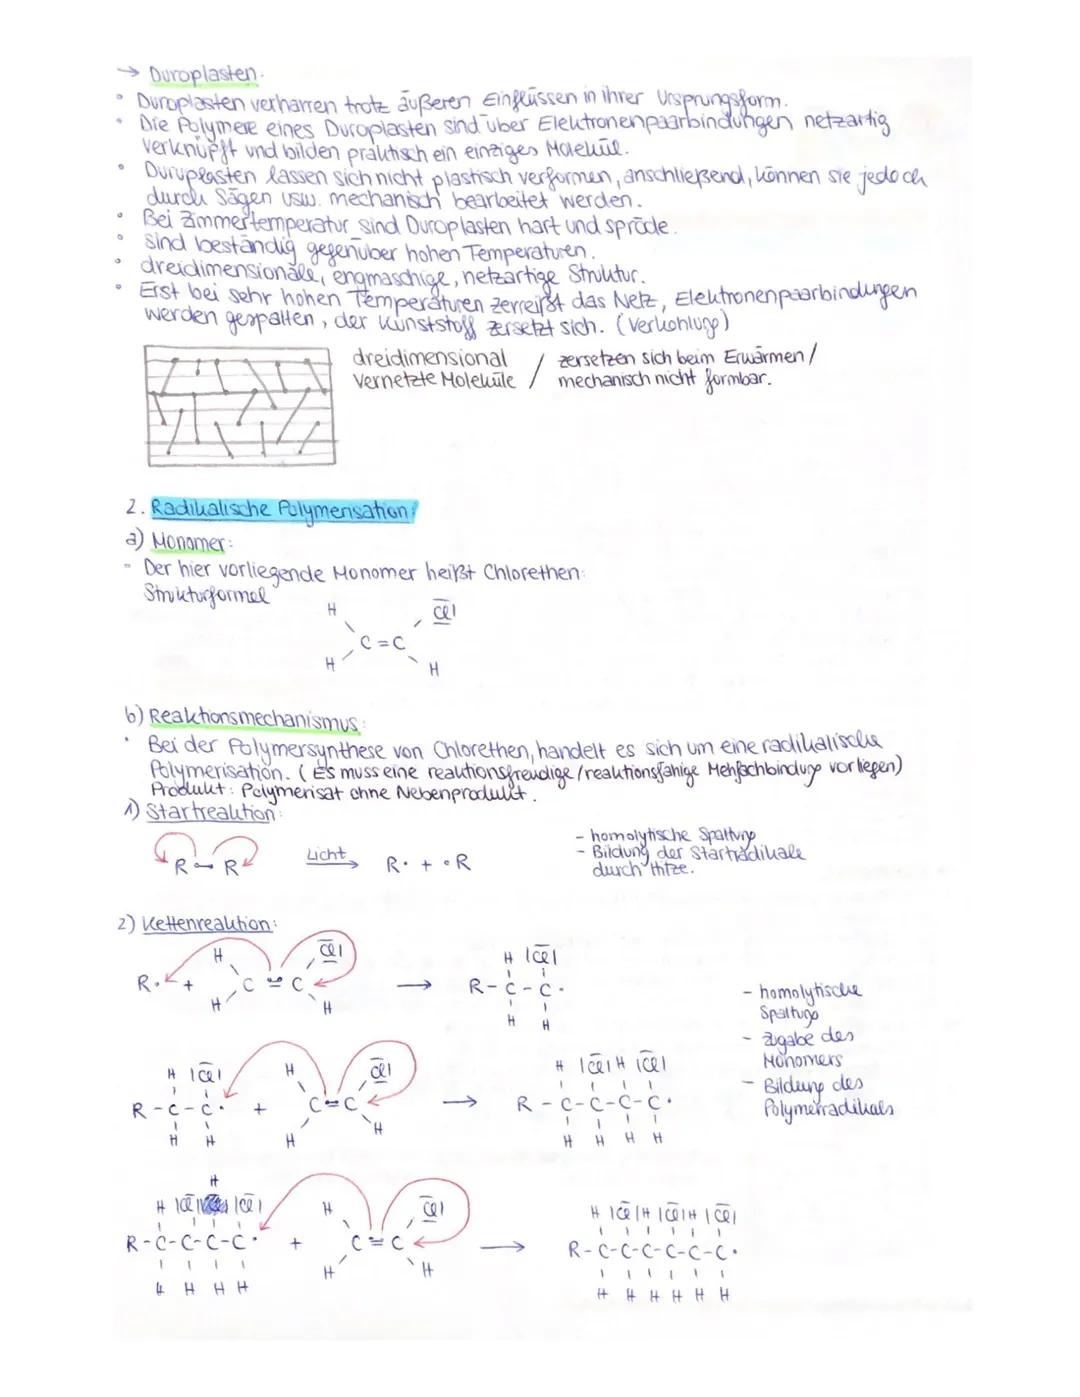 → Duroplasten.
° Duroplasten verharren trotz äußeren Einflüssen in ihrer Ursprungsform.
° Die Polymere eines Duroplasten sind über Elektronenpaarbindungen netzartig
verknüpft und bilden praktisch ein einziges Molekül.
° Duruplasten lassen sich nicht plastisch verformen, anschließend, können sie jedoch
durch Sägen usw. mechanisch bearbeitet werden.
° Bei Zimmertemperatur sind Duroplasten hart und spröde.
° sind beständig gegenüber hohen Temperaturen.
° dreidimensionale, engmaschige, netzartige Struktur.
° Erst bei sehr hohen Temperaturen zerreißt das Netz, Elektronenpaarbindungen
werden gespalten, der Kunststoff zersetzt sich. (Verkohlung)
dreidimensional / zersetzen sich beim Erwärmen /
vernetzte Moleküle / mechanisch nicht formbar.
2. Radikalische Polymerisation:
a) Monomer:
- Der hier vorliegende Monomer heißt Chlorethen:
Strukturformel
H Cl|
C=C
H H
b) Reaktionsmechanismus:
· Bei der Polymersynthese von Chlorethen, handelt es sich um eine radikalische
Polymerisation. (Es muss eine reaktionsfreudige/reaktionsfähige Mehfachbindung vorliegen)
Produkt: Polymerisat ohne Nebenprodukt.
1) Startreaktion:
R–R Licht→ R· + ·R
- homolytische Spaltung
- Bildung der Startradikale
durch Hitze.
2) Kettenreaktion:
H Cl|
R· + C=C → R-C-C·
H H
H |Cl|
H H
- homolytische
Spaltung
- Zugabe des
Monomers
- Bildung des
Polymerradikals
H |Cl| H Cl| H |Cl|H |Cl|
R-C-C· + C=C → R-C-C-C-C·
H H H H H H H H
H
H |Cl| |Cl| H Cl| H |Cl|H |Cl|H |Cl|
R-C-C-C-C· + C=C → R-C-C-C-C-C-C·
H H H H H H H H H H H H